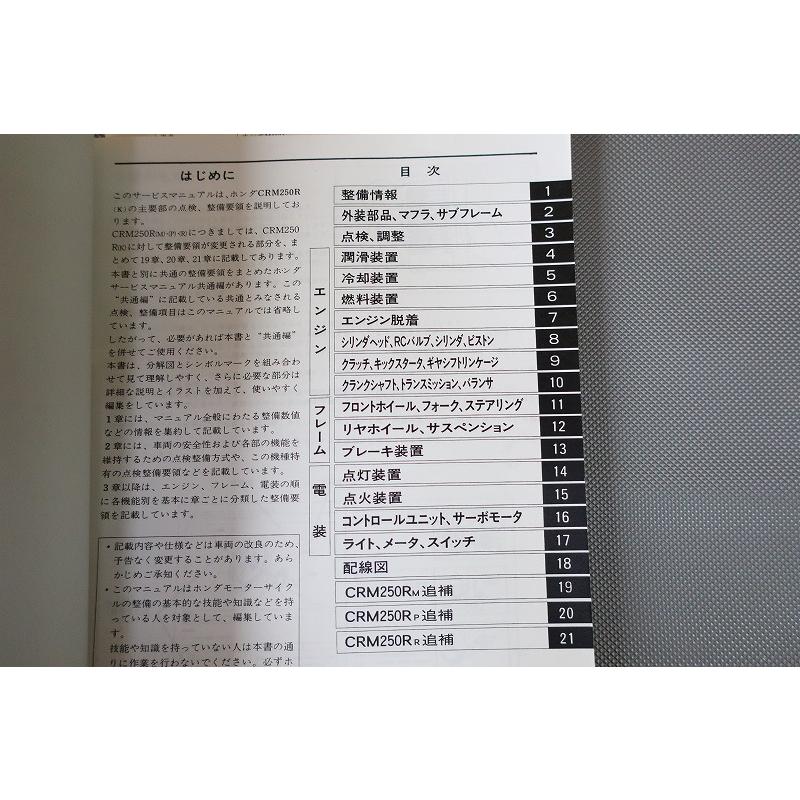 はじめに
このサービスマニュアルは、ホンダCRM250R
(K)の主要部の点検、整備要領を説明してお
ります。
CRM250R(M)・(P)・(R)につきましては、CRM250
R(K)に対して整備要領が変更される部分を、ま
とめて19章、20章、21章に記載してあります。
本書と別に共通の整備要領をまとめたホンダ
サービスマニュアル共通編があります。この
“共通編”に記載している共通とみなされる
点検、整備項目はこのマニュアルでは省略し
ています。
したがって、必要があれば本書と“共通編”
を併せてご使用ください。
本書は、分解図とシンボルマークを組み合わ
せて見て理解しやすく、さらに必要な部分は
詳細な説明とイラストを加えて、使いやすく
編集をしています。
1章には、マニュアル全般にわたる整備数値
などの情報を集約して記載しています。
2章には、車両の安全性および各部の機能を
維持するための点検整備方式や、この機種特
有の点検整備要領などを記載しています。
3章以降は、エンジン、フレーム、電装の順
に各機能別を基本に章ごとに分類した整備要
領を記載しています。
・記載内容や仕様などは車両の改良のため、
予告なく変更することがあります。あら
かじめご承知ください。
・このマニュアルはホンダモーターサイク
ルの整備の基本的な技能や知識などを持
っている人を対象として、編集していま
す。
技能や知識を持っていない人は本書の通
りに作業を行わないでください。必ずホ
目次
整備情報 1
外装部品、マフラ、サブフレーム 2
点検、調整 3
エンジン
潤滑装置 4
冷却装置 5
燃料装置 6
エンジン脱着 7
シリンダヘッド、RCバルブ、シリンダ、ピストン 8
クラッチ、キックスタータ、ギヤシフトリンケージ 9
クランクシャフト、トランスミッション、バランサ 10
フレーム
フロントホイール、フォーク、ステアリング 11
リヤホイール、サスペンション 12
ブレーキ装置 13
電装
点灯装置 14
点火装置 15
コントロールユニット、サーボモータ 16
ライト、メータ、スイッチ 17
配線図 18
CRM250RM追補 19
CRM250RP追補 20
CRM250RR追補 21